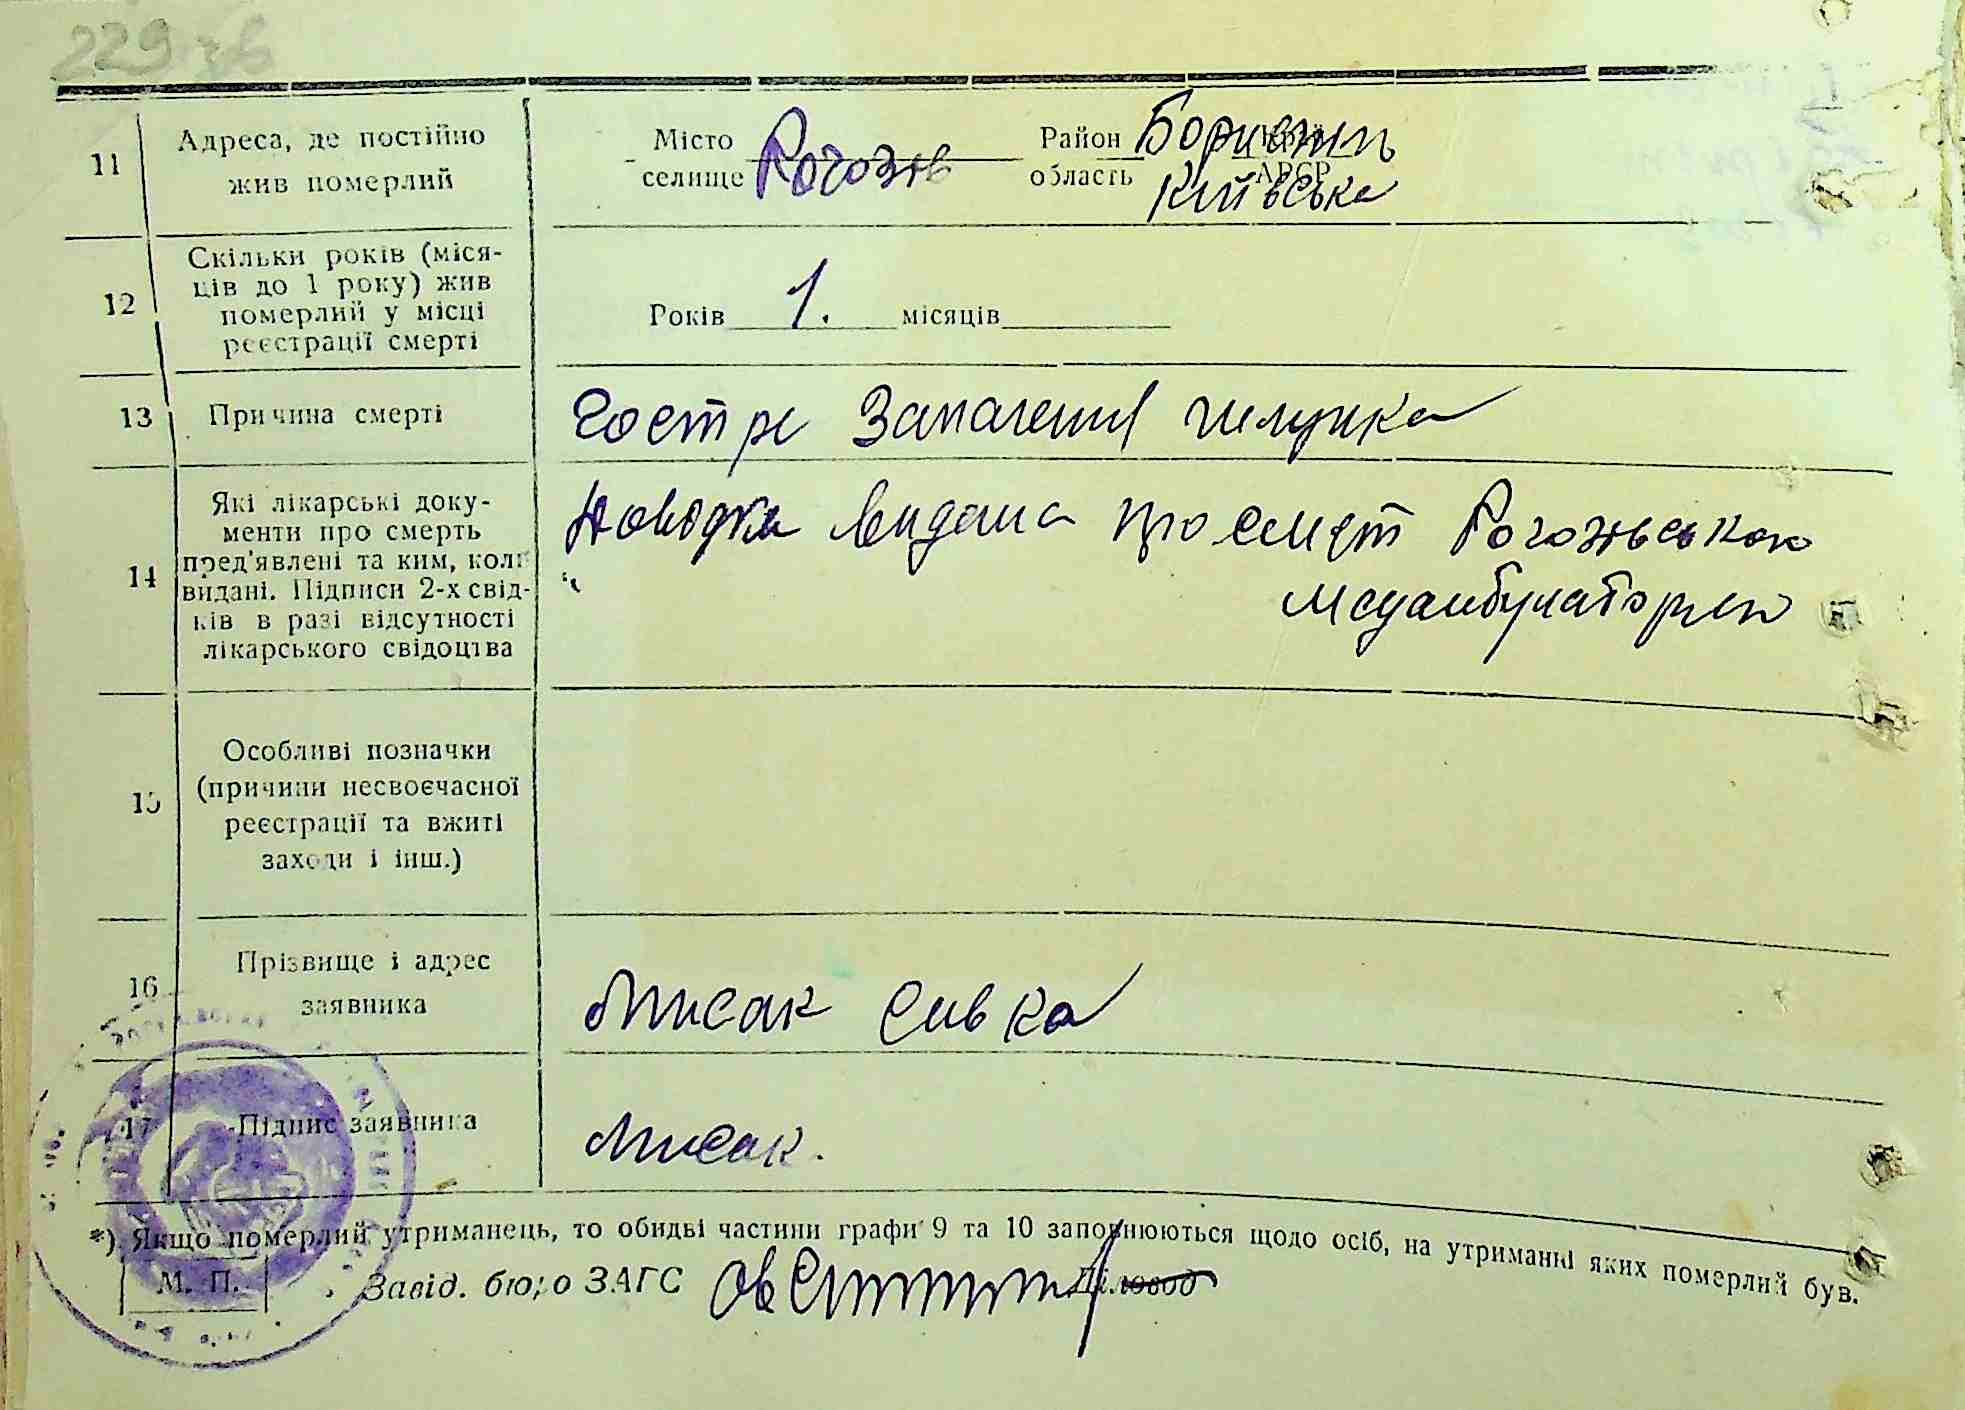 229 зв
11
Адреса, де постійно
жив померлий
Місто
селище
Рогозів
Район
область
Бориспіль
Київська
АРСР
12
Скільки років (міся-
ців до 1 року) жив
померлий у місці
реєстрації смерті
Років 1. місяців
13
Причина смерті
Гостре запалення шлунка
14
Які лікарські доку-
менти про смерть
пред'явлені та ким, коли
видані. Підписи 2-х свід-
ків в разі відсутності
лікарського свідоцтва
Довідка видана про смерт Рогозівською
медамбулаторією
15
Особливі позначки
(причини несвоєчасної
реєстрації та вжиті
заходи і інш.)
16
Прізвище і адрес
заявника
Лисак Сивка
17
Підпис заявника
Лисак.
*) Якщо померлий утриманець, то обидві частини графи 9 та 10 заповнюються щодо осіб, на утриманні яких померлий був.
М. П.
Завід. бюро ЗАГС
Діловод